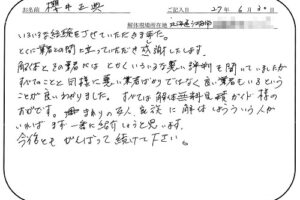 お名前 櫻井正典 ご記入日 27年6月30日
解体現場所在地 北海道
いろいろな経験をさせていただきました。
とくに業者との間に立っていただき感謝します。
解体ときの業者では とかくいろいろな悪い評判を聞いていましたが
すべてのことと同様に悪い業者ばかりではなく良い業者もいるという
ことが良いわかりました。すべては解体無料見積ガイド様の
おかげです。まわりの友人、家族に解体しようという人が
いればまず一番に紹介しようと思います。
今后ともがんばって続けて下さい。